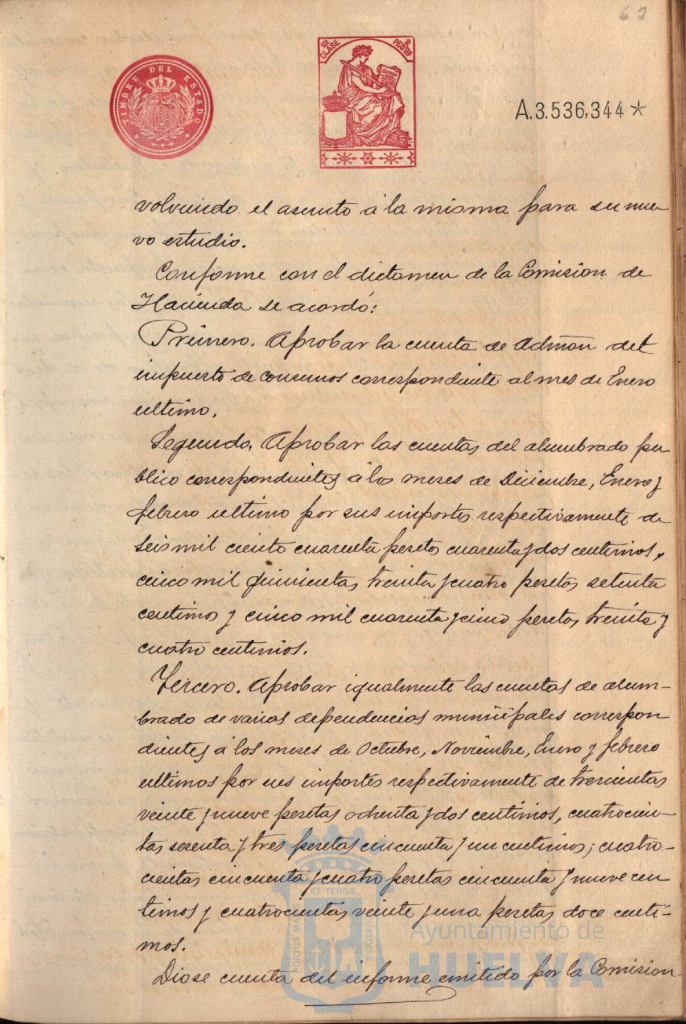 69
TIMBRE DEL ESTADO
CLASE
PESETAS
A.3.536,344*
volviendo el asunto á la misma para su nue
vo estudio.
Conforme con el dictamen de la Comision de
Hacienda se acordó:
Primero. Aprobar la cuenta de Admón del
impuesto de consumos correspondiente al mes de Enero
ultimo.
Segundo. Aprobar las cuentas del alumbrado pu
blico correspondientes á los meses de Diciembre, Enero y
febrero ultimo por sus importes respectivamente de
seis mil ciento cuarenta pesetas cuarenta y dos centimos,
cinco mil quinientas treinta y cuatro pesetas setenta
centimos y cinco mil cuarenta y cinco pesetas treinta y
cuatro centimos.
Tercero. Aprobar igualmente las cuentas de alum-
brado de varias dependencias municipales correspon
dientes á los meses de Octubre, Noviembre, Enero y febrero
ultimos por sus importes respectivamente de trescientas
veinte y nueve pesetas ochenta y dos centimos, cuatrocien-
tas sesenta y tres pesetas cincuenta y un centimos; cuatro-
cientas cincuenta y cuatro pesetas cincuenta y nueve cen
timos y cuatrocientas veinte y una pesetas doce centi-
mos.
Diose cuenta del informe emitido por la Comision
Ayuntamiento de
HUELVA